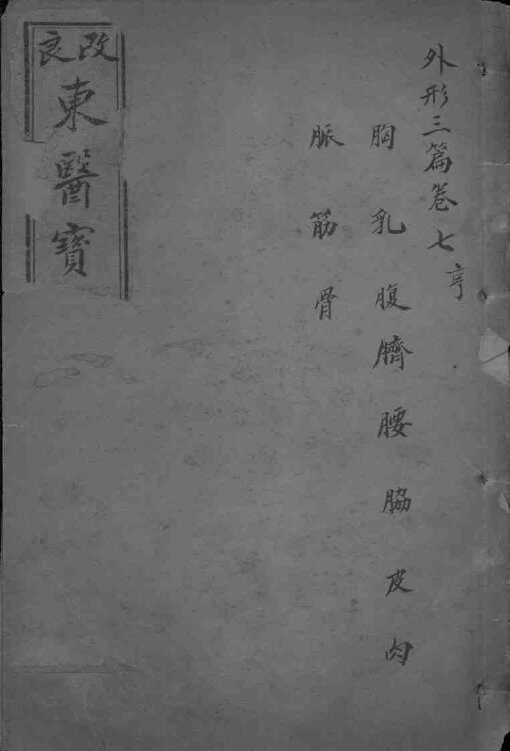 改良
東醫寶
外形三篇卷七 亨
胸乳腹臍腰脇皮肉
脈筋骨